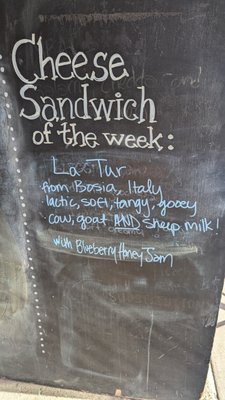 Cheese
Sandwich
of the week:
La Tur
from Bosia, Italy
lactic, soft, tangy, gooey
cow, goat AND sheep milk!
with Blueberry Honey Jam